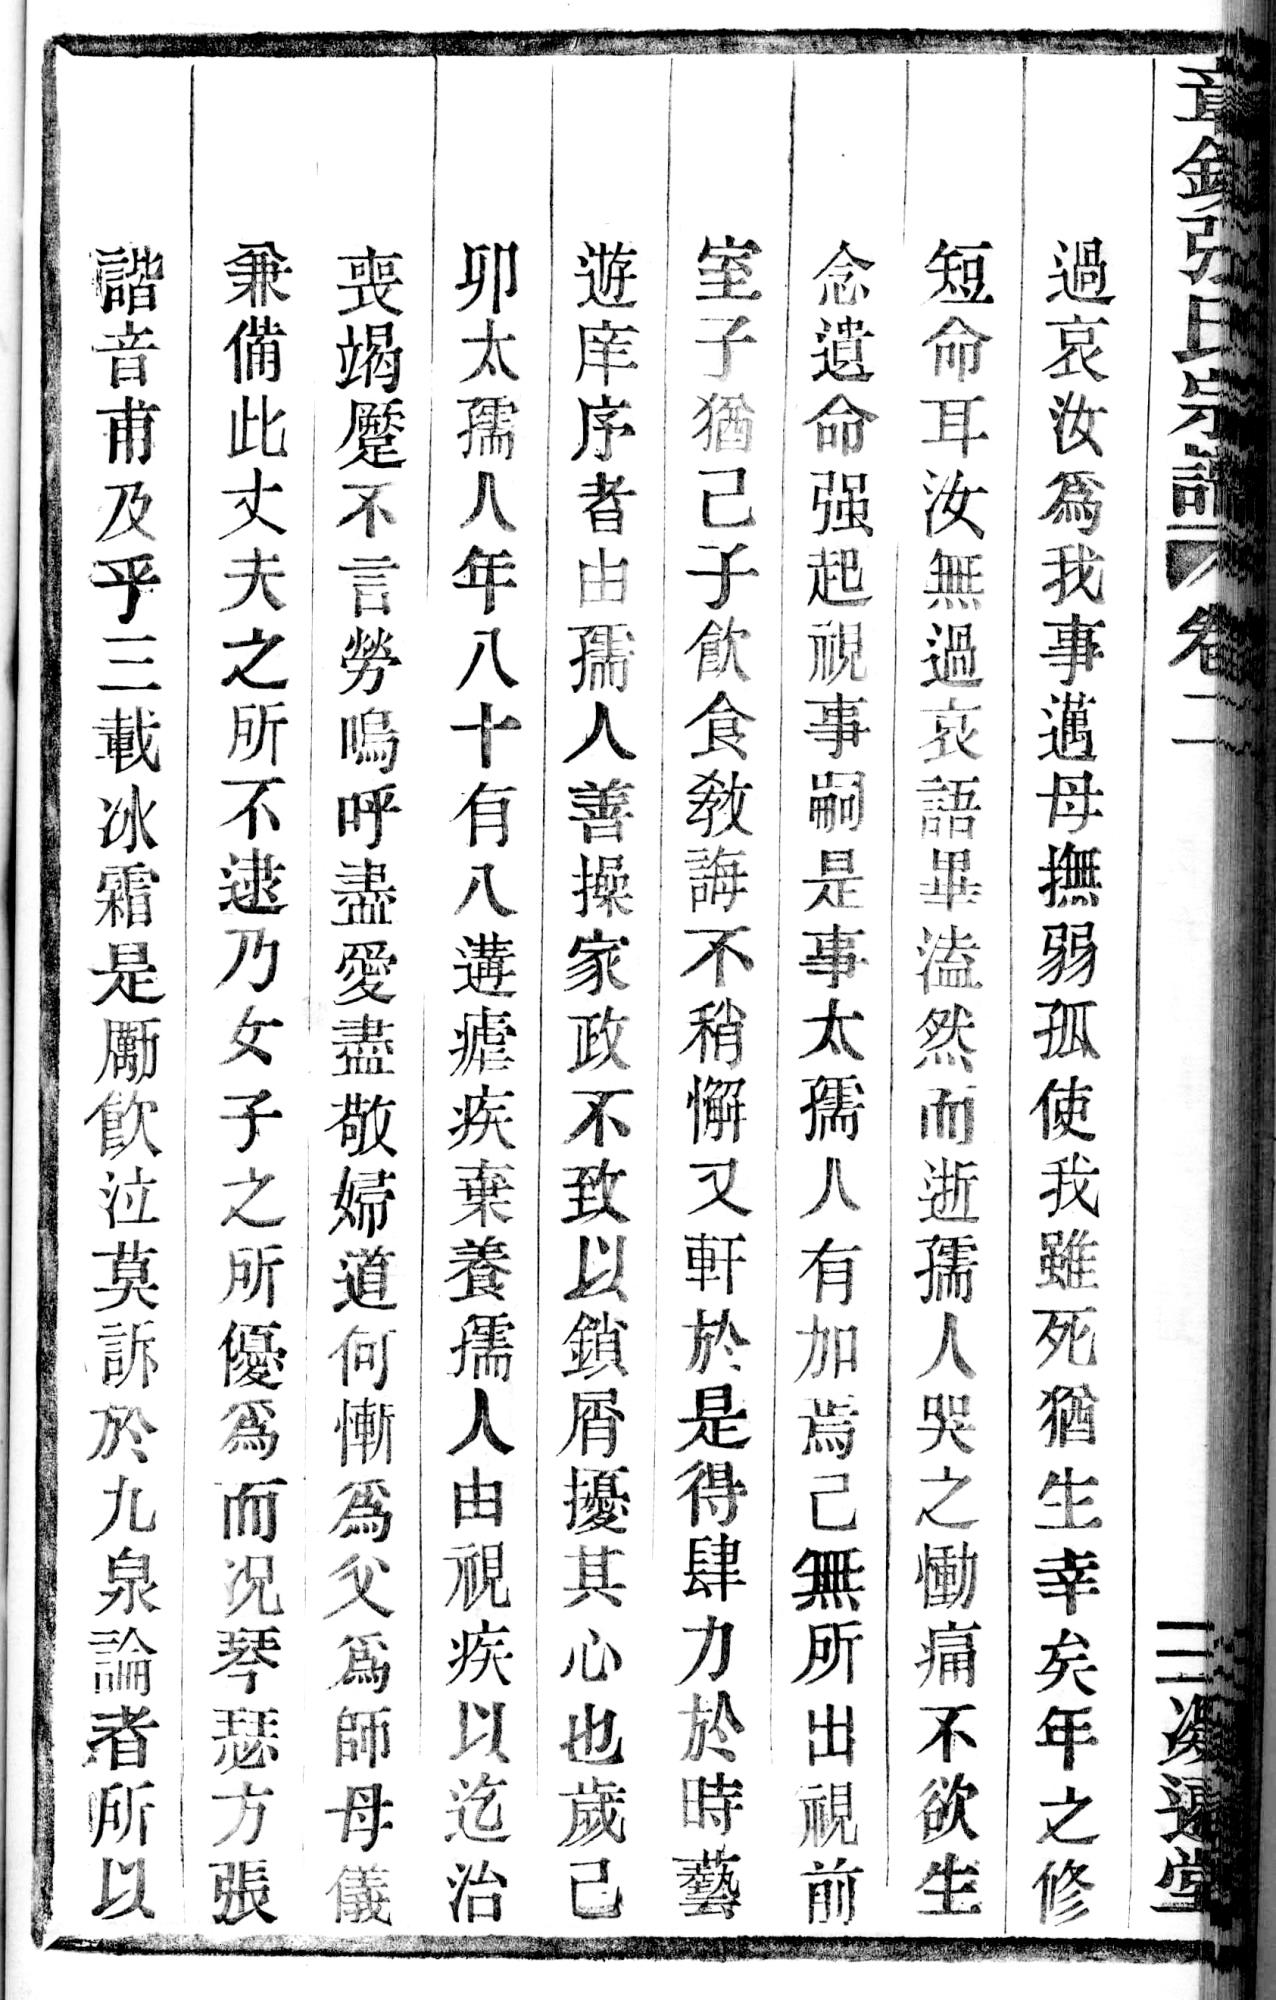 張氏宗譜 卷二 三
過哀汝爲我事邁母撫弱孤使我雖死猶生幸矣年之修
短命耳汝無過哀語畢溘然而逝孺人哭之慟痛不欲生
念遺命强起視事嗣是事太孺人有加焉己無所出視前
室子猶己子飮食敎誨不稍懈又軒於是得肆力於時藝
遊庠序者由孺人善操家政不致以鎖屑擾其心也歲己
卯太孺人年八十有八遘瘧疾棄養孺人由視疾以迄治
喪竭蹷不言勞嗚呼盡愛盡敬婦道何慚爲父爲師母儀
兼備此丈夫之所不逮乃女子之所優爲而况琴瑟方張
諧音甫及乎三載冰霜是勵飮泣莫訴於九泉論者所以